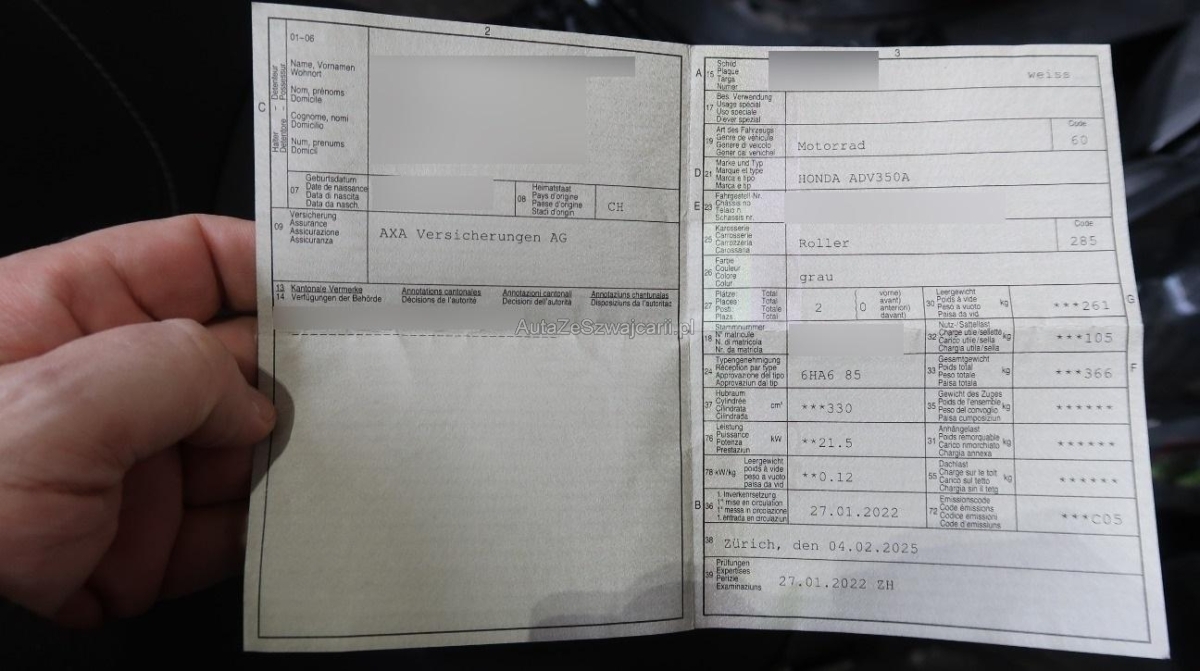 2
01-06
C
Halter - Détenteur
Detentore - Possessur
Name, Vornamen
Wohnort
Nom, prénoms
Domicile
Cognome, nomi
Domicilio
Num, prenums
Domicil
07
Geburtsdatum
Date de naissance
Data di nascita
Data da nasch.
08
Heimatstaat
Pays d'origine
Paese d'origine
Stadi d'origin
CH
09
Versicherung
Assurance
Assicurazione
Assicuranza
AXA Versicherungen AG
13 Kantonale Vermerke
14 Verfügungen der Behörde
Annotations cantonales
Décisions de l'autorité
Annotazioni cantonali
Decisioni dell'autorità
Annotaziuns chantunalas
Disposiziuns da l'autoritad
AutaZeSzwajcarii.pl
3
A 15
Schild
Plaque
Targa
Numer
weiss
17
Bes. Verwendung
Usage spécial
Uso speciale
Diever spezial
19
Art des Fahrzeugs
Genre de véhicule
Genere di veicolo
Gener da vehichel
Motorrad
Code
60
D 21
Marke und Typ
Marque et type
Marca e tipo
Marca e tip
HONDA ADV350A
E 23
Fahrgestell Nr.
Châssis no
Telaio n.
Schassis nr.
25
Karosserie
Carrosserie
Carrozzeria
Carossaria
Roller
Code
285
26
Farbe
Couleur
Colore
Colur
grau
27
Plätze: Total
Places: Total
Posti: Totale
Plazs: Total
2
(0
vorne)
avant)
anteriori)
davant)
30
Leergewicht
Poids à vide
Peso a vuoto
Paisa da vid
kg
***261
G
18
Stammnummer
N° matricule
N. di matricola
Nr. da matricla
32
Nutz-/Sattellast
Charge utile/sellette
Carico utile/sella
Chargia utila/sella
kg
***105
24
Typengenehmigung
Réception par type
Approvazione del tipo
Approvaziun dal tip
6HA6 85
33
Gesamtgewicht
Poids total
Peso totale
Paisa totala
kg
***366
F
37
Hubraum
Cylindrée
Cilindrata
Cilindrada
cm³
***330
35
Gewicht des Zuges
Poids de l'ensemble
Peso del convoglio
Paisa cumposiziun
kg
******
76
Leistung
Puissance
Potenza
Prestaziun
kW
**21.5
31
Anhängelast
Poids remorquable
Carico rimorchiato
Chargia annexa
kg
******
78 kW/kg
Leergewicht
poids à vide
peso a vuoto
paisa da vid
**0.12
55
Dachlast
Charge sur le toit
Carico sul tetto
Chargia sin il tetg
kg
******
B 36
1. Inverkehrsetzung
1re mise en circulation
1a messa in circolazione
1. entrada en circulaziun
27.01.2022
72
Emissionscode
Code émissions
Codice emissioni
Code d'emissiuns
***C05
38
Zürich, den 04.02.2025
39
Prüfungen
Expertises
Perizie
Examinaziuns
27.01.2022 ZH